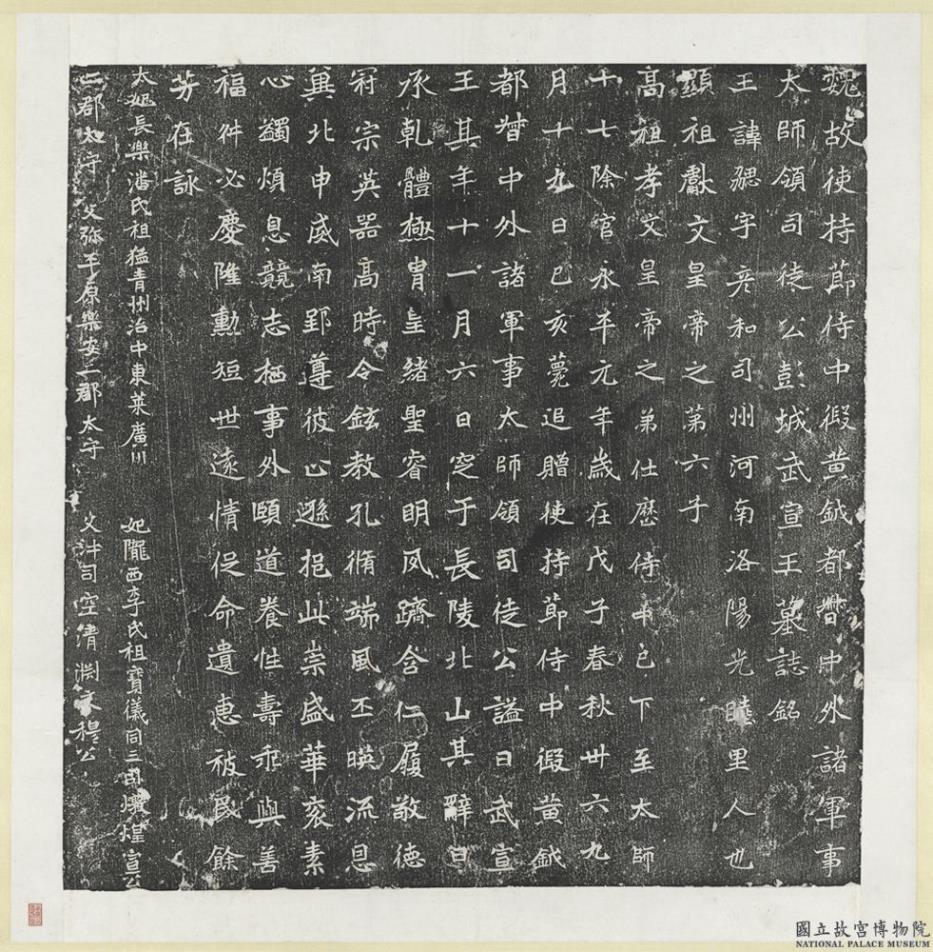 魏故使持節侍中假黃鉞都督中外諸軍事
太師領司徒公彭城武宣王墓誌銘
王諱勰字彥和司州河南洛陽光睦里人也
顯祖獻文皇帝之第六子
高祖孝文皇帝之弟仕歷侍中已下至太師
十七除官永平元年歲在戊子春秋卅六九
月十九日己亥薨追贈使持節侍中假黃鉞
都督中外諸軍事太師領司徒公謚曰武宣
王其年十一月六日窆于長陵北山其辭曰
承乾體極胄皇緒聖睿明夙躋含仁履敬德
冠宗英器高時令鉉教孔脩端風丕暎流恩
冀北申威南郢遵彼止遜挹此崇盛華袞素
心蠲煩息競志栖事外頤道養性壽乖與善
福舛必慶隆勳短世遠情促命遺惠被民餘
芳在詠
太妃長樂潘氏祖猛青州治中東萊廣川
二郡太守 父弥平原樂安二郡太守
妃隴西李氏祖寶儀同三司燉煌宣公
父沖司空清淵文穆公
國立故宮博物院
NATIONAL PALACE MUSEUM